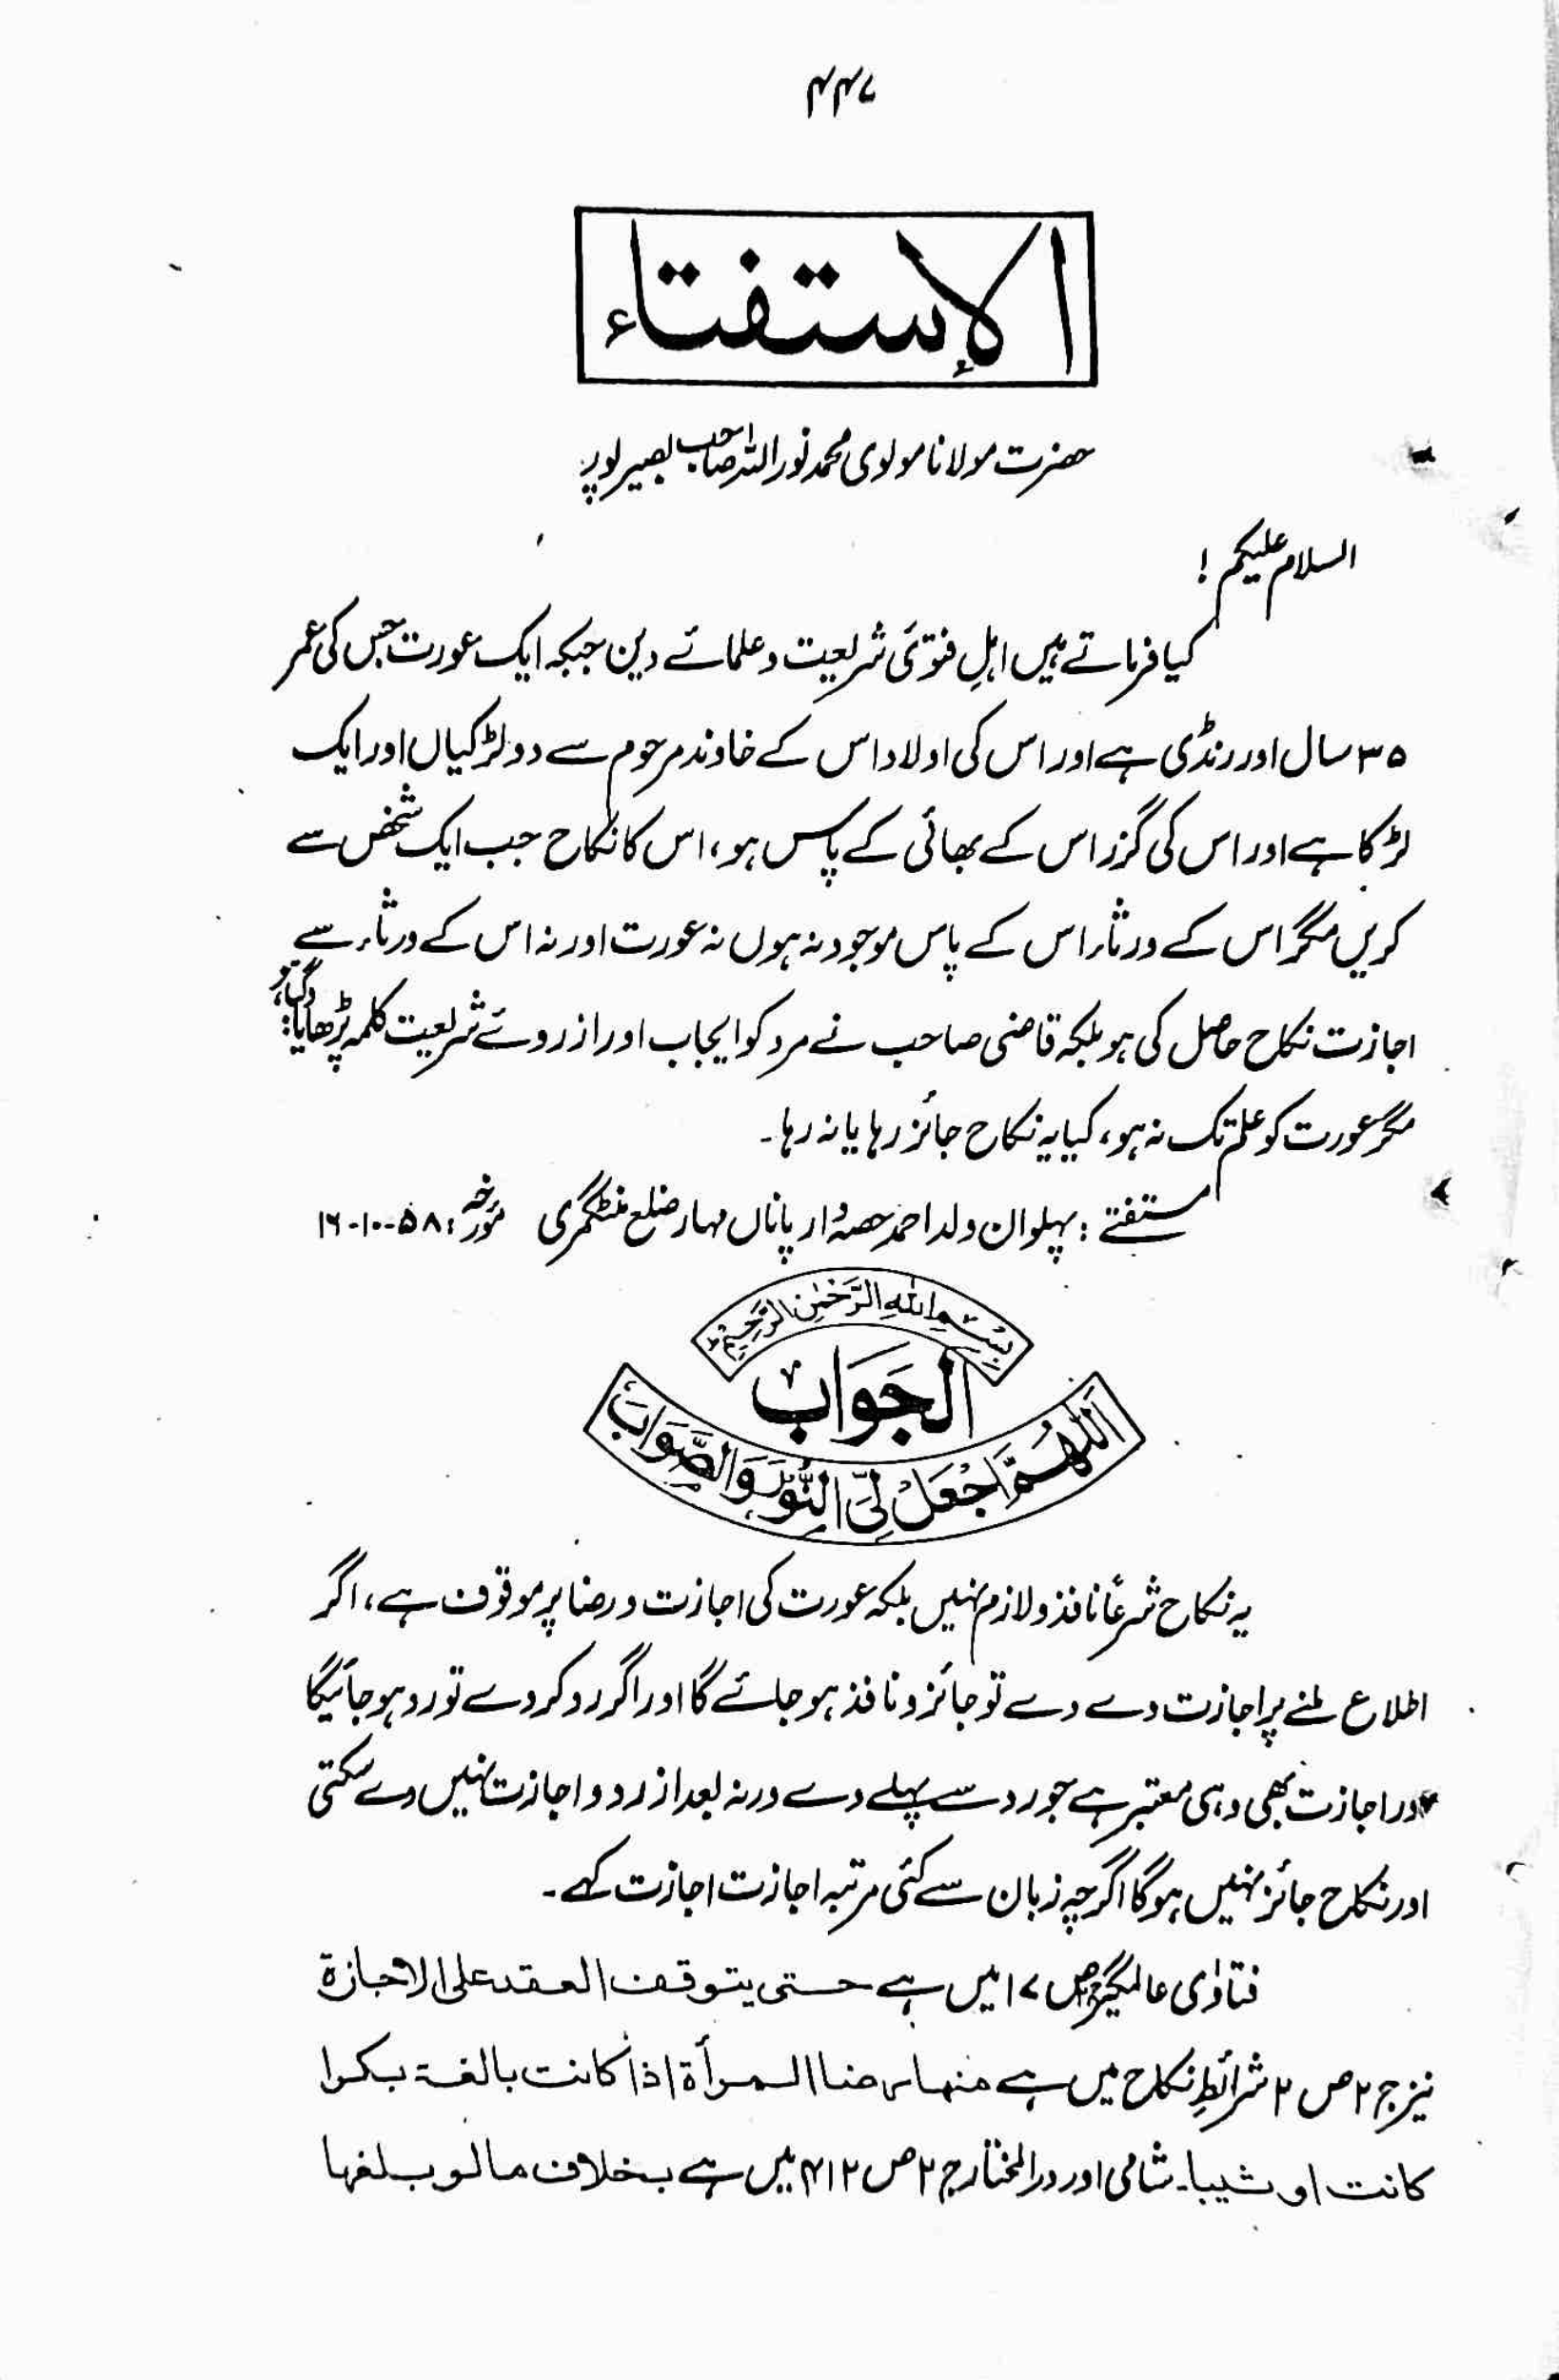 ۴۴۷
الإستفتاء
حضرت مولانا مولوی محمد نور اللہ صاحب بصیرپور
السلام علیکم!
کیا فرماتے ہیں اہلِ فتوئ شریعت و علمائے دین جبکہ ایک عورت جس کی عمر
۳۵ سال اور رنڈی ہے اور اس کی اولاد اس کے خاوند مرحوم سے دو لڑکیاں اور ایک
لڑکا ہے اور اس کی گزر اس کے بھائی کے پاس ہو، اس کا نکاح جب ایک شخص سے
کریں مگر اس کے ورثاء اس کے پاس موجود نہ ہوں نہ عورت اور نہ اس کے ورثاء سے
اجازت نکاح حاصل کی ہو بلکہ قاضی صاحب نے مرد کو ایجاب اور ازروئے شریعت کلمہ پڑھایا گیا ہو
مگر عورت کو علم تک نہ ہو، کیا یہ نکاح جائز رہا یا نہ رہا۔
مستفتے: پہلوان ولد احمد حصہ دار پاناں مہار ضلع منٹگمری مورخہ: ۵۸-۱۰-۱۶
بِسْمِ اللهِ الرَّحْمٰنِ الرَّحِيْمِ
الجَوَاب
اَللّٰهُمَّ اجْعَلْ لِيَ النُّوْرَ وَالصَّوَابَ
یہ نکاح شرعاً نافذ و لازم نہیں بلکہ عورت کی اجازت و رضا پر موقوف ہے، اگر
اطلاع ملنے پر اجازت دے دے تو جائز و نافذ ہو جائے گا اور اگر رد کر دے تو رد ہو جائیگا
اور اجازت بھی وہی معتبر ہے جو رد سے پہلے دے ورنہ بعد از رد و اجازت نہیں دے سکتی
اور نکاح جائز نہیں ہوگا اگرچہ زبان سے کئی مرتبہ اجازت اجازت کہے۔
فتاوٰی عالمگیر ص ۱۷ میں ہے حتی یتوقف العقد علی الاجازة
نیز ج ۲ ص ۲ شرائطِ نکاح میں ہے منها رضا المرأة اذا کانت بالغة بکرا
کانت او ثیبا۔ شامی اور درالمختار ج ۲ ص ۴۱۲ میں ہے بخلاف مالو بلغها